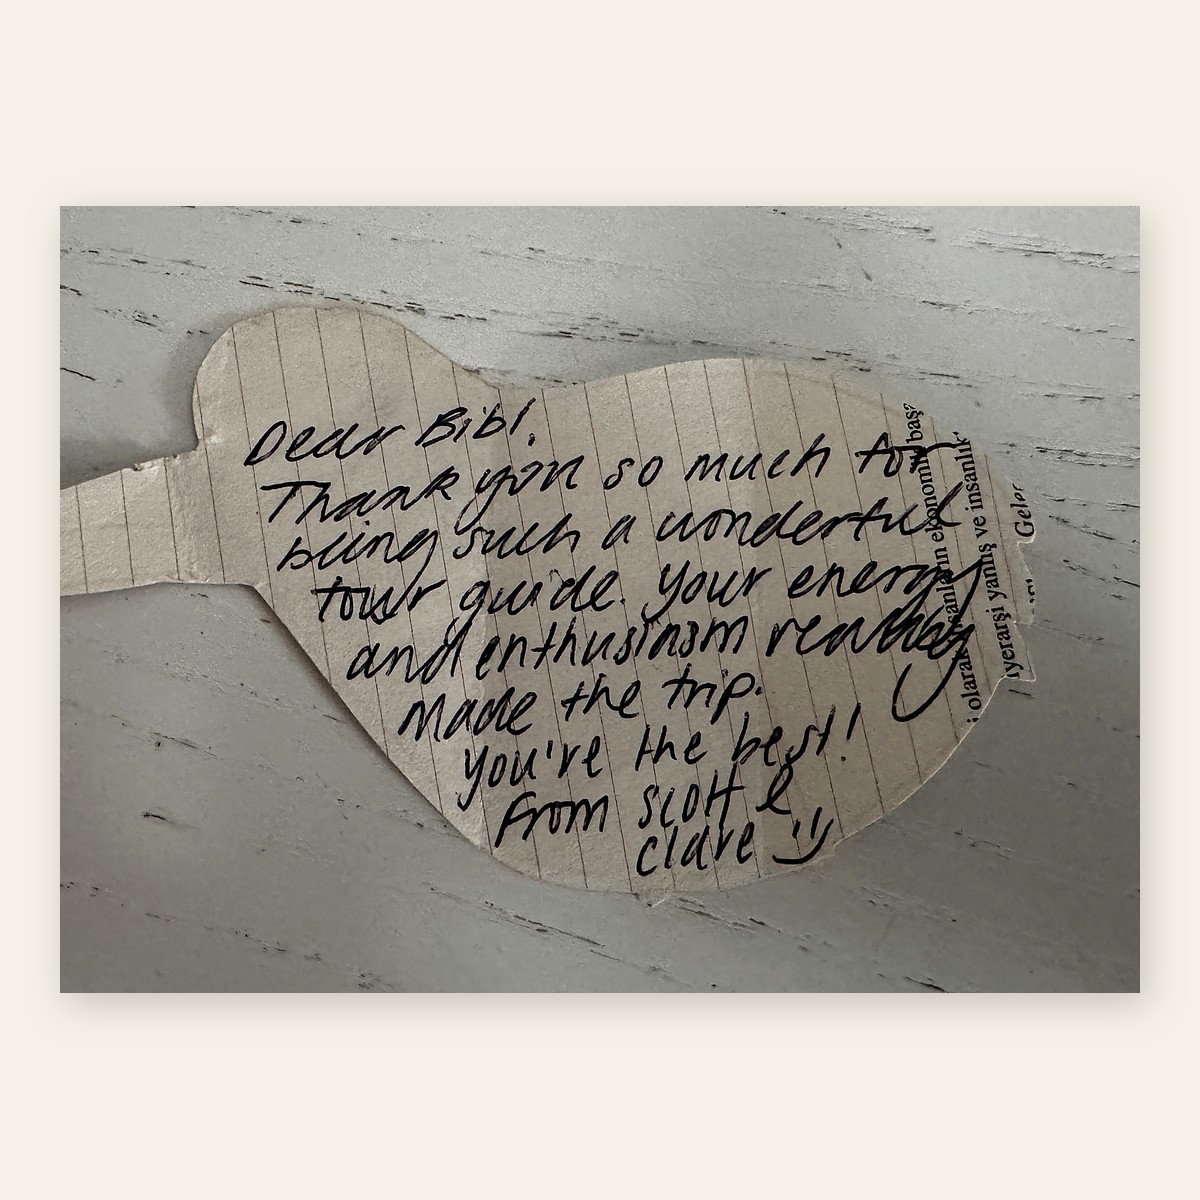 Dear Bibi,
Thank you so much for
being such a wonderful
tour guide. Your energy
and enthusiasm really
made the trip.
You're the best!
From Scott &
Clare :)
ekonomik
yanlış ve insanlık
Geler